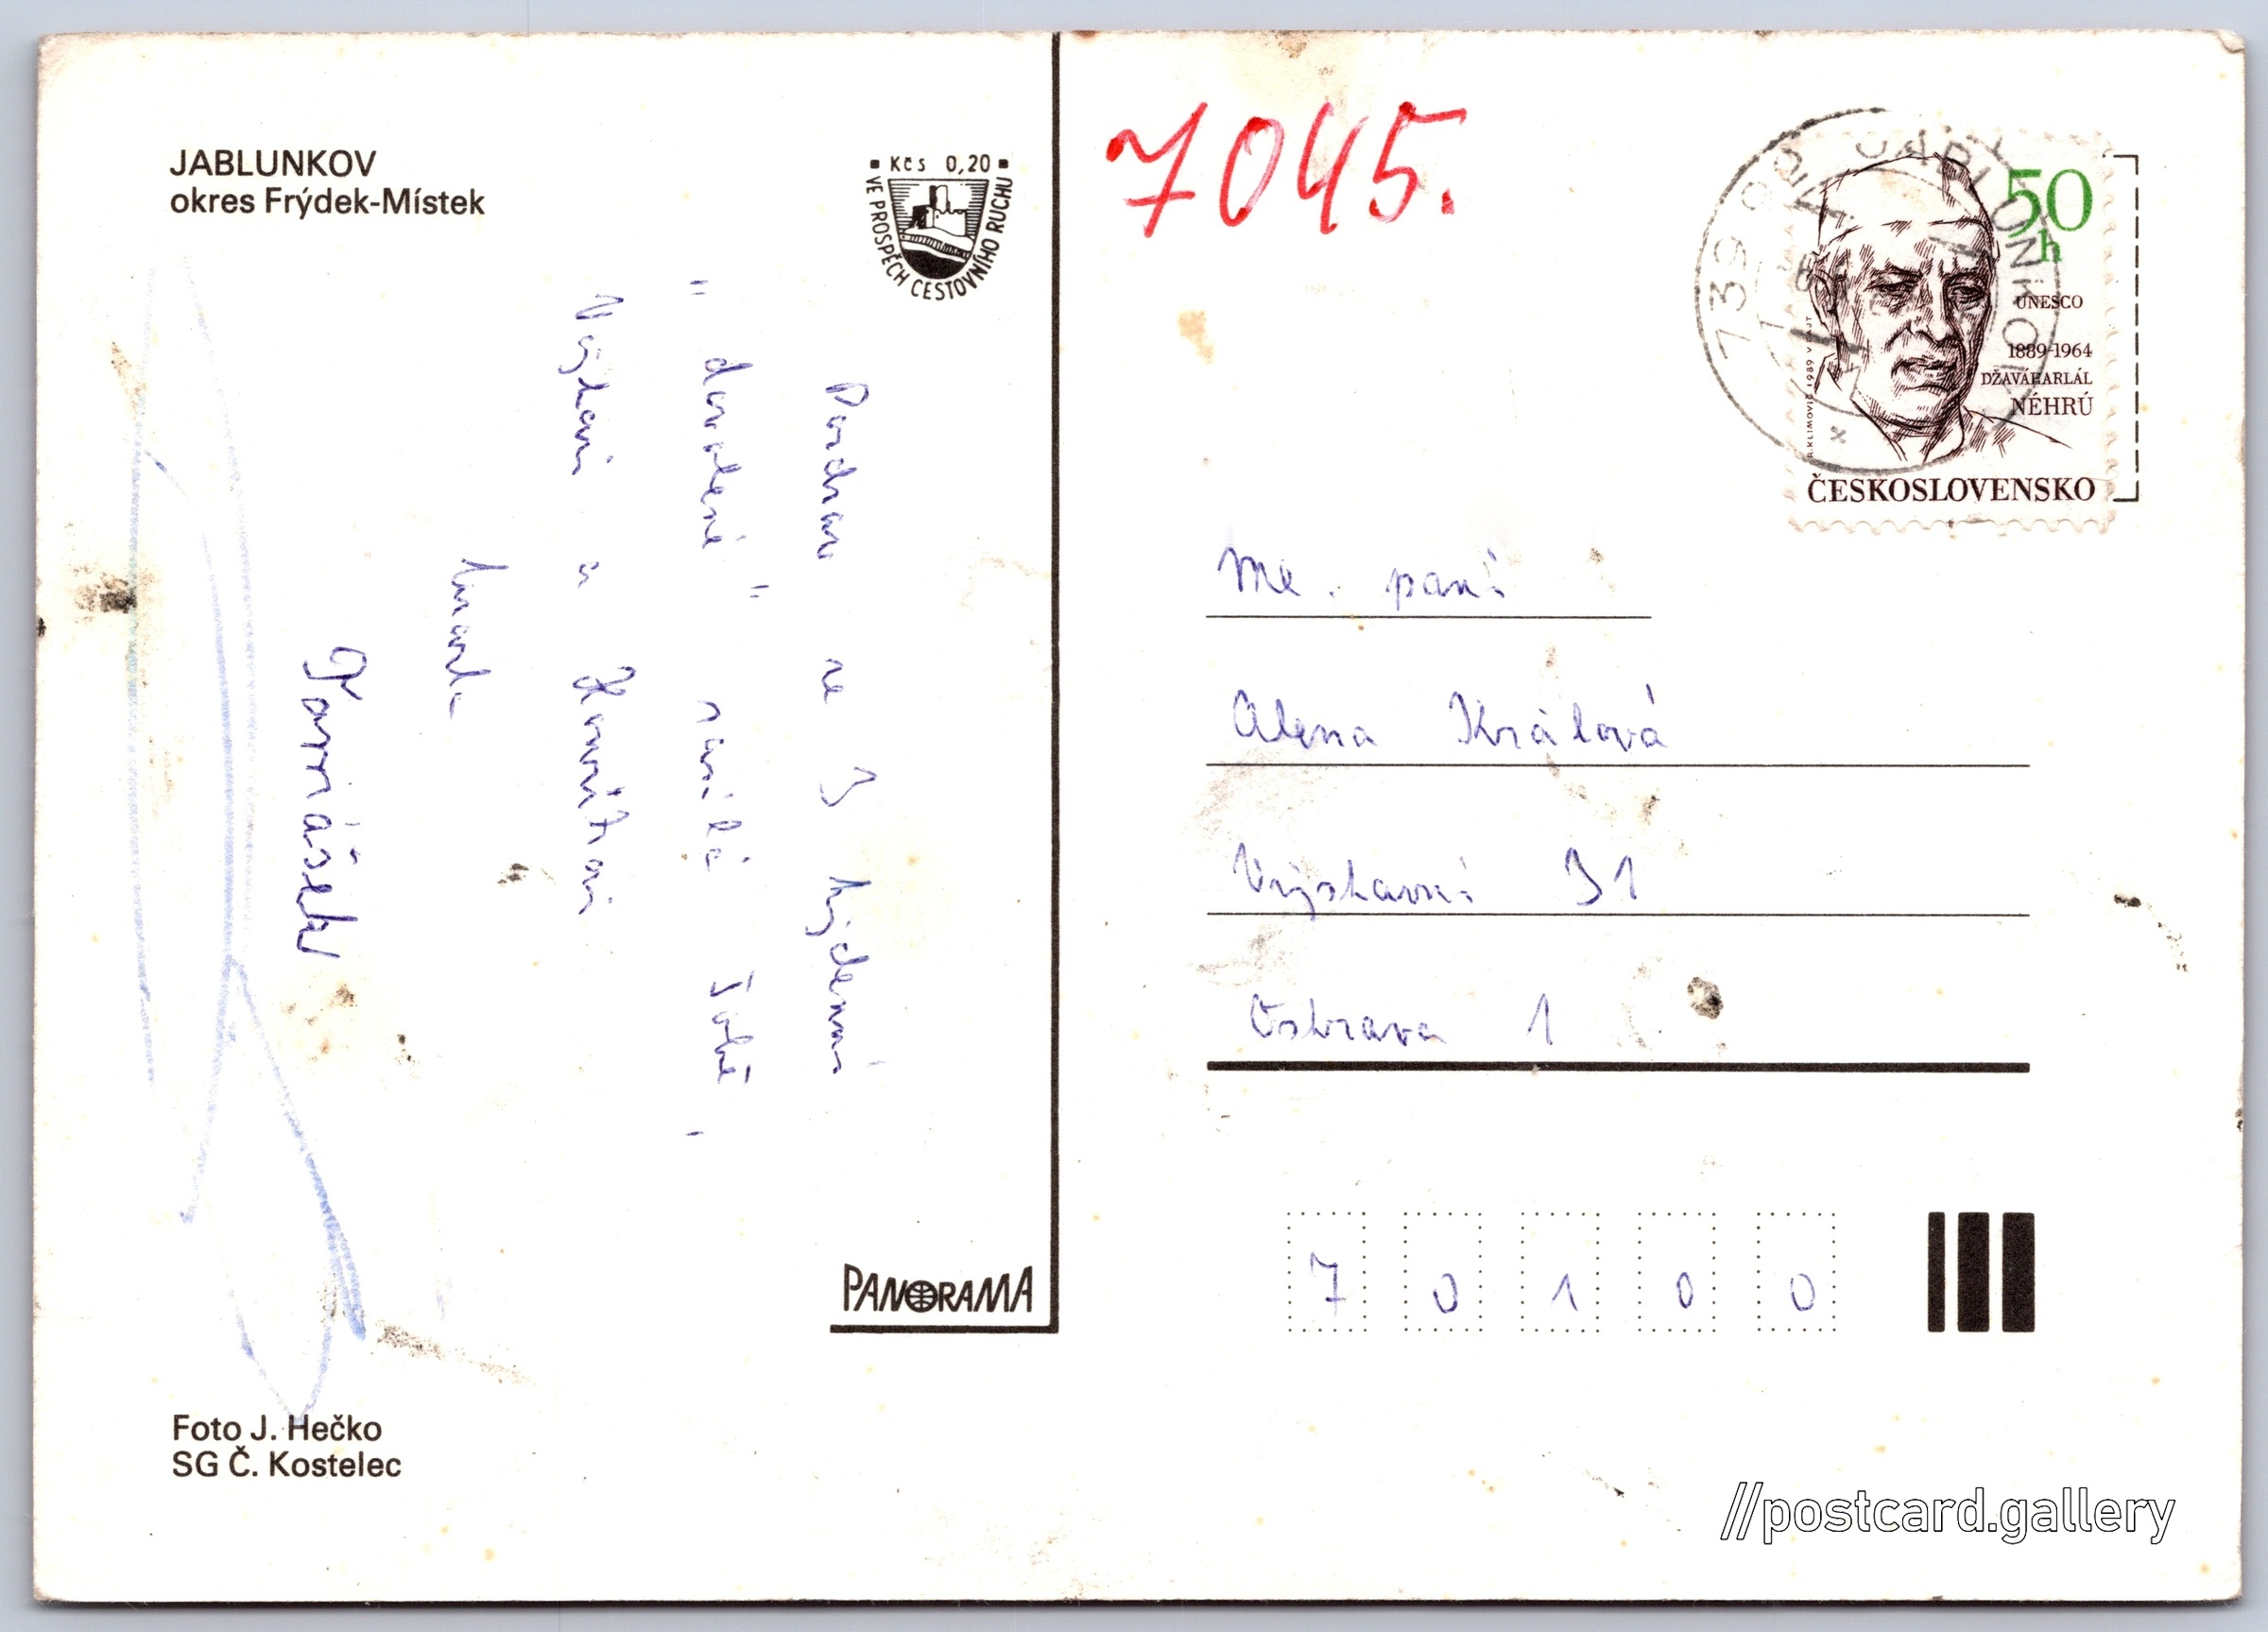 JABLUNKOV
okres Frýdek-Místek
Kčs 0,20
VE PROSPĚCH CESTOVNÍHO RUCHU
Pozdrav ze 3 týdenní
"dovolené" zasílá Tobě,
Vojtovi a Honzíkovi
Tomášek
PANORAMA
Foto J. Hečko
SG Č. Kostelec
7045.
739 91 JABLUNKOV 1
50 h
UNESCO
1889-1964
DŽAVÁHARLÁL
NÉHRÚ
R. KLIMOVIČ 1989 V. FAJT
ČESKOSLOVENSKO
Me. paní
Alena Králová
Výstavní 31
Ostrava 1
7 0 1 0 0
//postcard.gallery